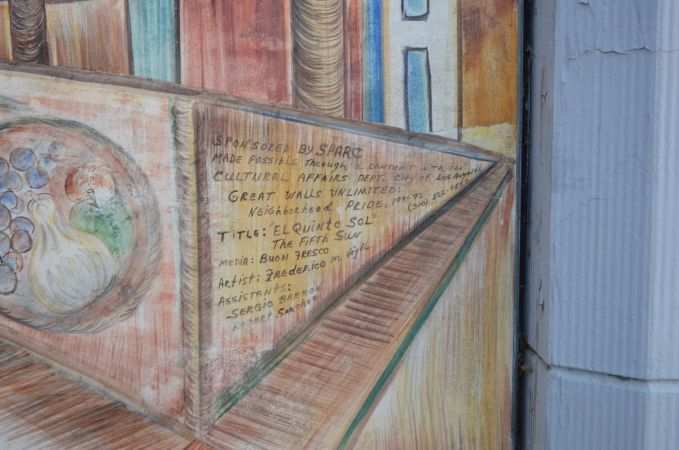 SPONSORED BY SPARC
MADE POSSIBLE THROUGH A CONTRACT WITH THE
CULTURAL AFFAIRS DEPT. CITY OF LOS ANGELES
GREAT WALLS UNLIMITED:
NEIGHBORHOOD PRIDE, 1991-92
TITLE: "EL QUINTO SOL"
THE FIFTH SUN
MEDIA: BUON FRESCO
ARTIST: FREDERICO M. VIGIL
ASSISTANTS:
SERGIO BARRON
SANCHEZ